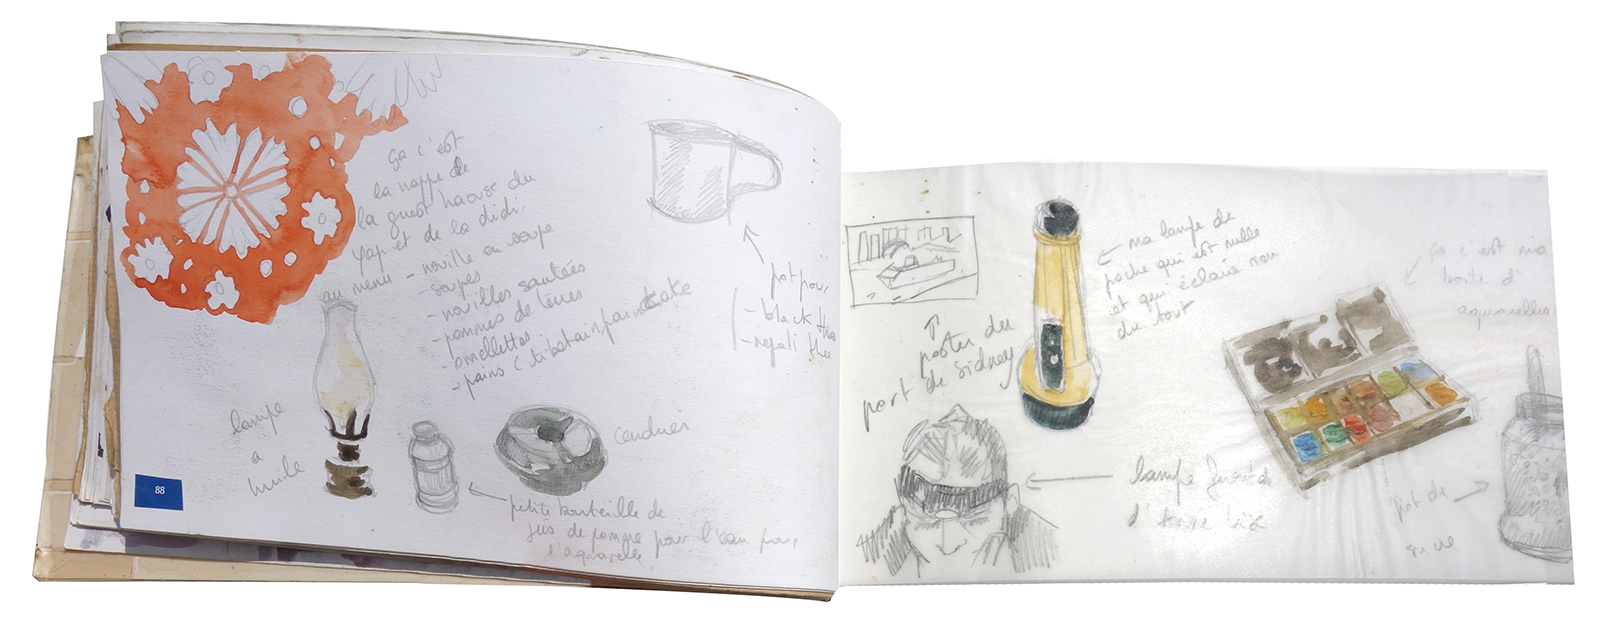 ça c'est
la nappe de
la guest haouse du
Yap et de la didi.
au menu - nouille en soupe
- soupes
- nouilles sautées
- pommes de terres
- omellettes
- pains (tibetain pain cake
pot pour
- black thea
- nepali thea
lampe
a
huile
cendrier
petite bouteille de
jus de pomme pour l'eau pour
l'aquarelle
88
poster du
port de sidney
ma lampe de
poche qui est nulle
et qui éclaire rien
du tout
ça c'est ma
boite d'
aquarelles
lampe
d'
pot de